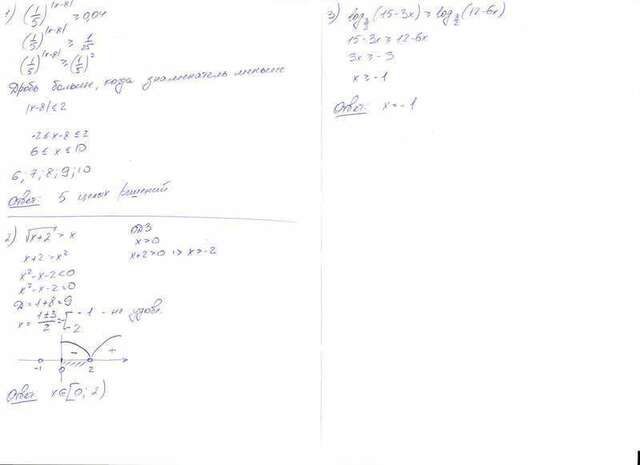 1) (1/5)^|x-8| ≥ 0,04
(1/5)^|x-8| ≥ 1/25
(1/5)^|x-8| ≥ (1/5)^2
Дробь больше, когда знаменатель меньше
|x-8| ≤ 2
-2 ≤ x-8 ≤ 2
6 ≤ x ≤ 10
6; 7; 8; 9; 10
Ответ: 5 целых решений
2) √(x+2) > x
ОДЗ
x > 0
x+2 > x²
x+2 > 0 => x > -2
x²-x-2 < 0
x²-x-2 = 0
Д = 1+8 = 9
x = (1±3)/2 = [ -1 - не удовл.
2
- +
-1 0 2
Ответ x ∈ [0; 2)
3) log (15-3x) ≥ log (12-6x)
15-3x ≥ 12-6x
3x ≥ -3
x ≥ -1
Ответ: x = -1